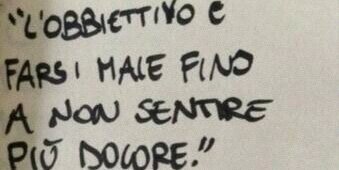 "L'OBBIETTIVO E
FARSI MALE FINO
A NON SENTIRE
PIÙ DOLORE."